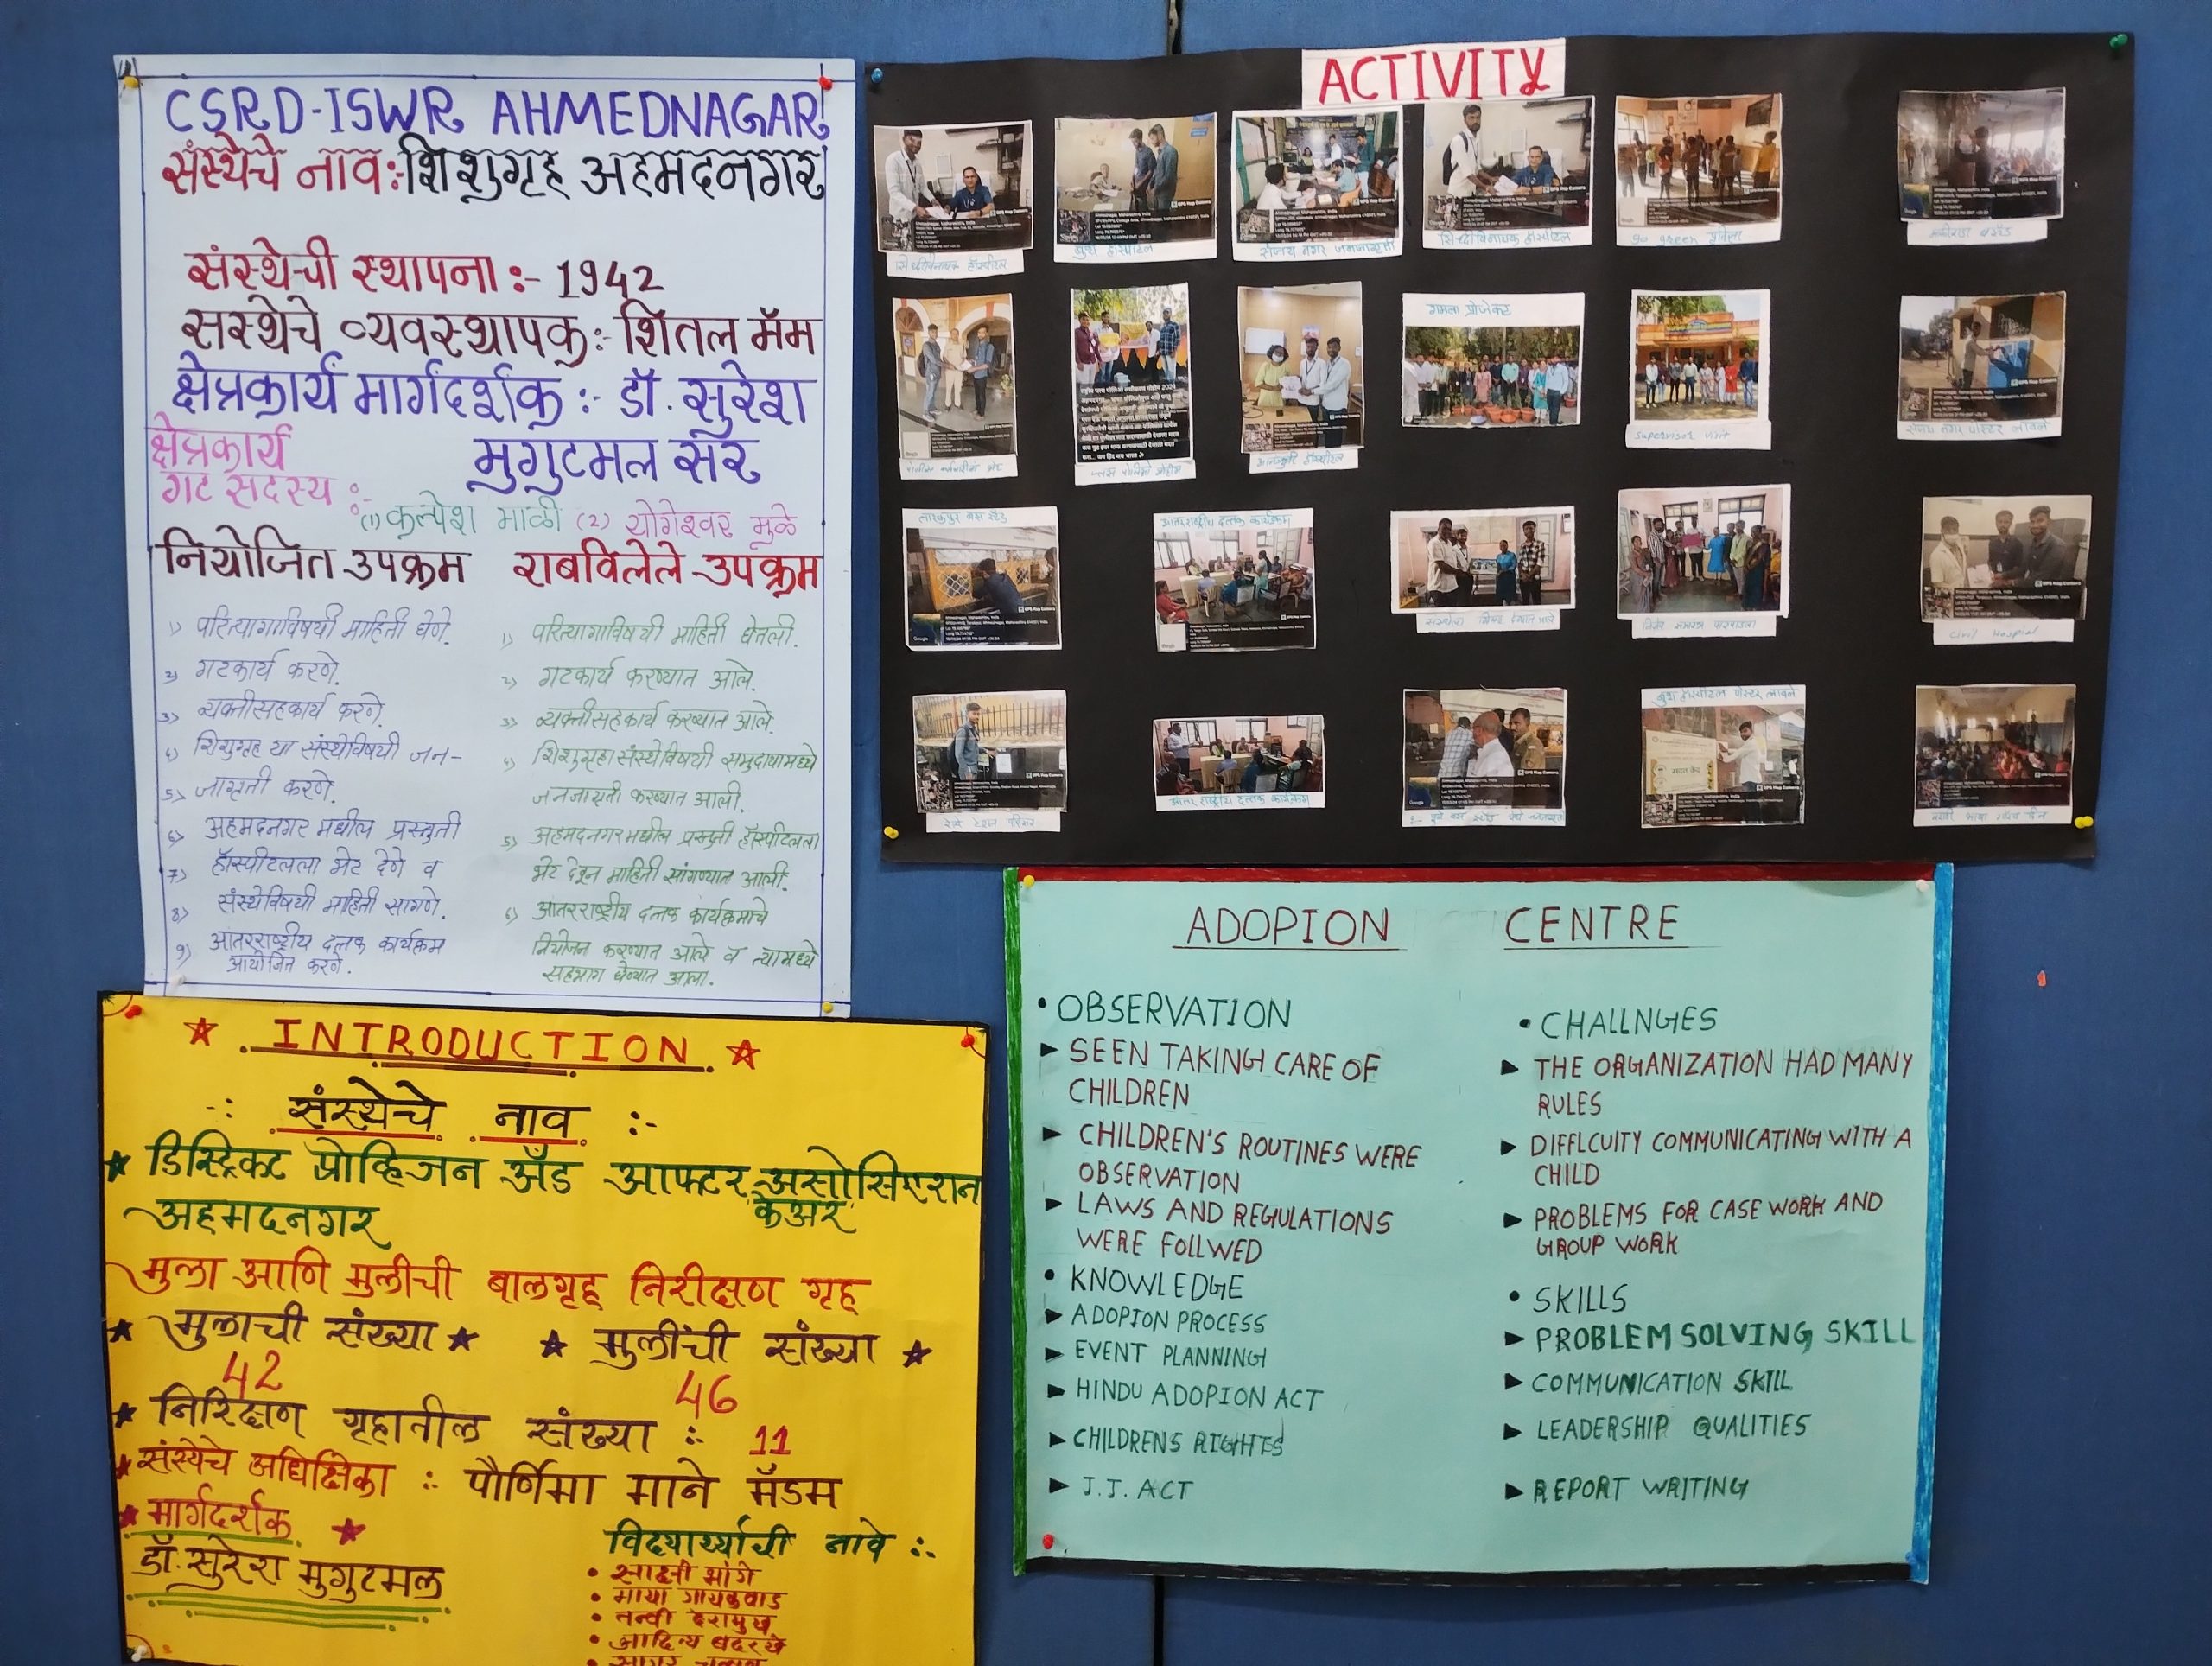 CSRD-ISWR AHMEDNAGAR
संस्थेचे नाव:-शिशुगृह अहमदनगर
संस्थेची स्थापना :- 1942
सस्थेचे व्यवस्थापक :- शितल मॅम
क्षेत्रकार्य मार्गदर्शक :- डॉ. सुरेश
मुगुटमल सर
क्षेत्रकार्य
गट सदस्य :-
(1) कल्पेश माळी (2) योगेश्वर मुळे
नियोजित उपक्रम
1) परित्यागाविषयी माहिती घेणे.
2) गटकार्य करणे.
3) व्यक्तीसहकार्य करणे.
4) शिशुगृह या संस्थेविषयी जन-
5) जागृती करणे.
6) अहमदनगर मधील प्रस्तुती
7) हॉस्पीटलला भेट देणे व
8) संस्थेविषयी माहिती सांगणे.
9) आंतरराष्ट्रीय दत्तक कार्यक्रम
आयोजित करणे.
राबविलेले उपक्रम
1) परित्यागाविषयी माहिती घेतली.
2) गटकार्य करण्यात आले.
3) व्यक्तीसहकार्य करण्यात आले.
4) शिशुगृहा संस्थेविषयी समुदायामध्ये
जनजागृती करण्यात आली.
5) अहमदनगरमधील प्रस्तुती हॉस्पीटलला
भेट देवून माहिती सांगण्यात आली.
6) आंतरराष्ट्रीय दत्तक कार्यक्रमाचे
नियोजन करण्यात आले व त्यामध्ये
सहभाग घेण्यात आला.
ACTIVITY
सिध्दीविनायक हॉस्पीटल
हॉस्पीटल
संजय नगर जनजागृती
सिध्दीविनायक हॉस्पीटल
go green
गमला प्रोजेक्ट
supervisor visit
संजय नगर पोस्टर लावले
पल्स पोलिओ मोहीम
हॉस्पीटल
तारकपुर बस स्टँड
आंतरराष्ट्रीय दत्तक कार्यक्रम
Civil Hospital
आंतर राष्ट्रीय दत्तक कार्यक्रम
हॉस्पीटल पोस्टर लावले
INTRODUCTION
-: संस्थेचे नाव :-
डिस्ट्रिक्ट प्रोव्हिजन अँड आफ्टर असोसिएशन
केअर
अहमदनगर
मुला आणि मुलीची बालगृह निरीक्षण गृह
मुलाची संख्या
मुलींची संख्या
42
46
निरिक्षण गृहातील संख्या :- 11
संस्थेचे अधिक्षिका :- पौर्णिमा माने मॅडम
मार्गदर्शक
डॉ. सुरेश मुगुटमल
विद्यार्थ्यांची नावे :-
• साक्षी भांगे
• माया गायकवाड
• तन्वी देशमुख
• आदित्य बदरखे
ADOPION CENTRE
• OBSERVATION
► SEEN TAKING CARE OF
CHILDREN
► CHILDREN'S ROUTINES WERE
OBSERVATION
► LAWS AND REGULATIONS
WERE FOLLWED
• KNOWLEDGE
► ADOPION PROCESS
► EVENT PLANNING
► HINDU ADOPION ACT
► CHILDRENS RIGHTS
► J.J. ACT
• CHALLNGES
► THE ORGANIZATION HAD MANY
RULES
► DIFFLCUITY COMMUNICATING WITH A
CHILD
► PROBLEMS FOR CASE WORK AND
GROUP WORK
• SKILLS
► PROBLEM SOLVING SKILL
► COMMUNICATION SKILL
► LEADERSHIP QUALITIES
► REPORT WRITING